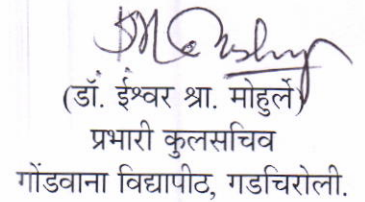 (डॉ. ईश्वर श्रा. मोहुर्ले)
प्रभारी कुलसचिव
गोंडवाना विद्यापीठ, गडचिरोली.